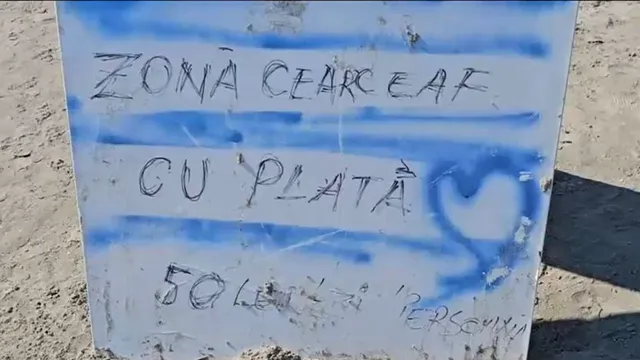 ZONĂ CEARCEAF
CU PLATĂ
50 LEI / ZI
PERSOANA